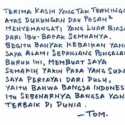 TERIMA KASIH YANG TAK TERHINGGA
ATAS DUKUNGAN DAN PESAN²
MENYEMANGATI YANG LUAR BIASA
DARI IBU-BAPAK SEMUANYA.
BEGITU BANYAK KEBAIKAN YANG
SAYA ALAMI SEPANJANG PENGALAMAN
BURUK INI, MEMBUAT SAYA
SEMAKIN YAKIN PADA YANG SUDAH
SAYA PERCAYAI DARI DULU,
YAITU BAHWA BANGSA INDONESIA
MEMANG SEBENARNYA BANGSA YANG
TERBAIK DI DUNIA.
—TOM.